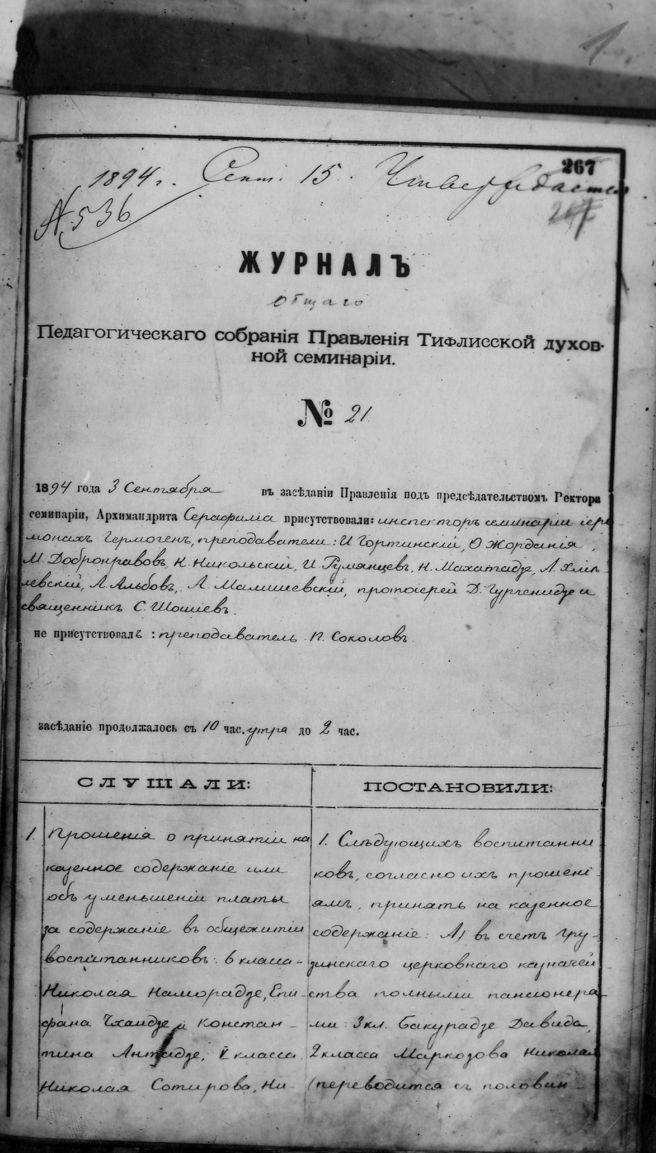 1
267
1894 г. Сент. 15. Утверждается
№ 536
267
ЖУРНАЛЪ
общаго
Педагогическаго собранія Правленія Тифлисской духов-
ной семинаріи.
№ 21
1894 года 3 Сентября въ засѣданіи Правленія подъ предсѣдательствомъ Ректора
семинаріи, Архимандрита Серафима присутствовали: инспекторъ семинаріи іеро-
монахъ Гермогенъ, преподаватели: И Гортинскій, Ѳ Жорданія,
М. Добронравовъ, Н. Никольскій, И Румянцевъ, Н. Махатадзе, А. Хлѣб-
левскій, А. Альбовъ, А. Малишевскій, протоіерей Д. Гургенидзе и
священникъ С. Шошіевъ.
не присутствовалъ: преподаватель П. Соколовъ
засѣданіе продолжалось съ 10 час. утра до 2 час.
СЛУШАЛИ:
1. Прошенія о принятіи на
казенное содержаніе или
объ уменьшеніи платы
за содержаніе въ общежитіи
воспитанниковъ: 6 класса –
Николая Наморадзе, Епи-
фана Чхаидзе и Констан-
тина Антадзе, V класса
Николая Сотирова, Ни-
ПОСТАНОВИЛИ:
1. Слѣдующихъ воспитанни
ковъ, согласно ихъ прошені-
ямъ, принять на казенное
содержаніе: А) въ счетъ Гру-
зинскаго церковнаго казначей-
ства полными пансионера-
ми: 3 кл. Бакурадзе Давида,
2 класса Маркозова Николая
(переводится съ половин-